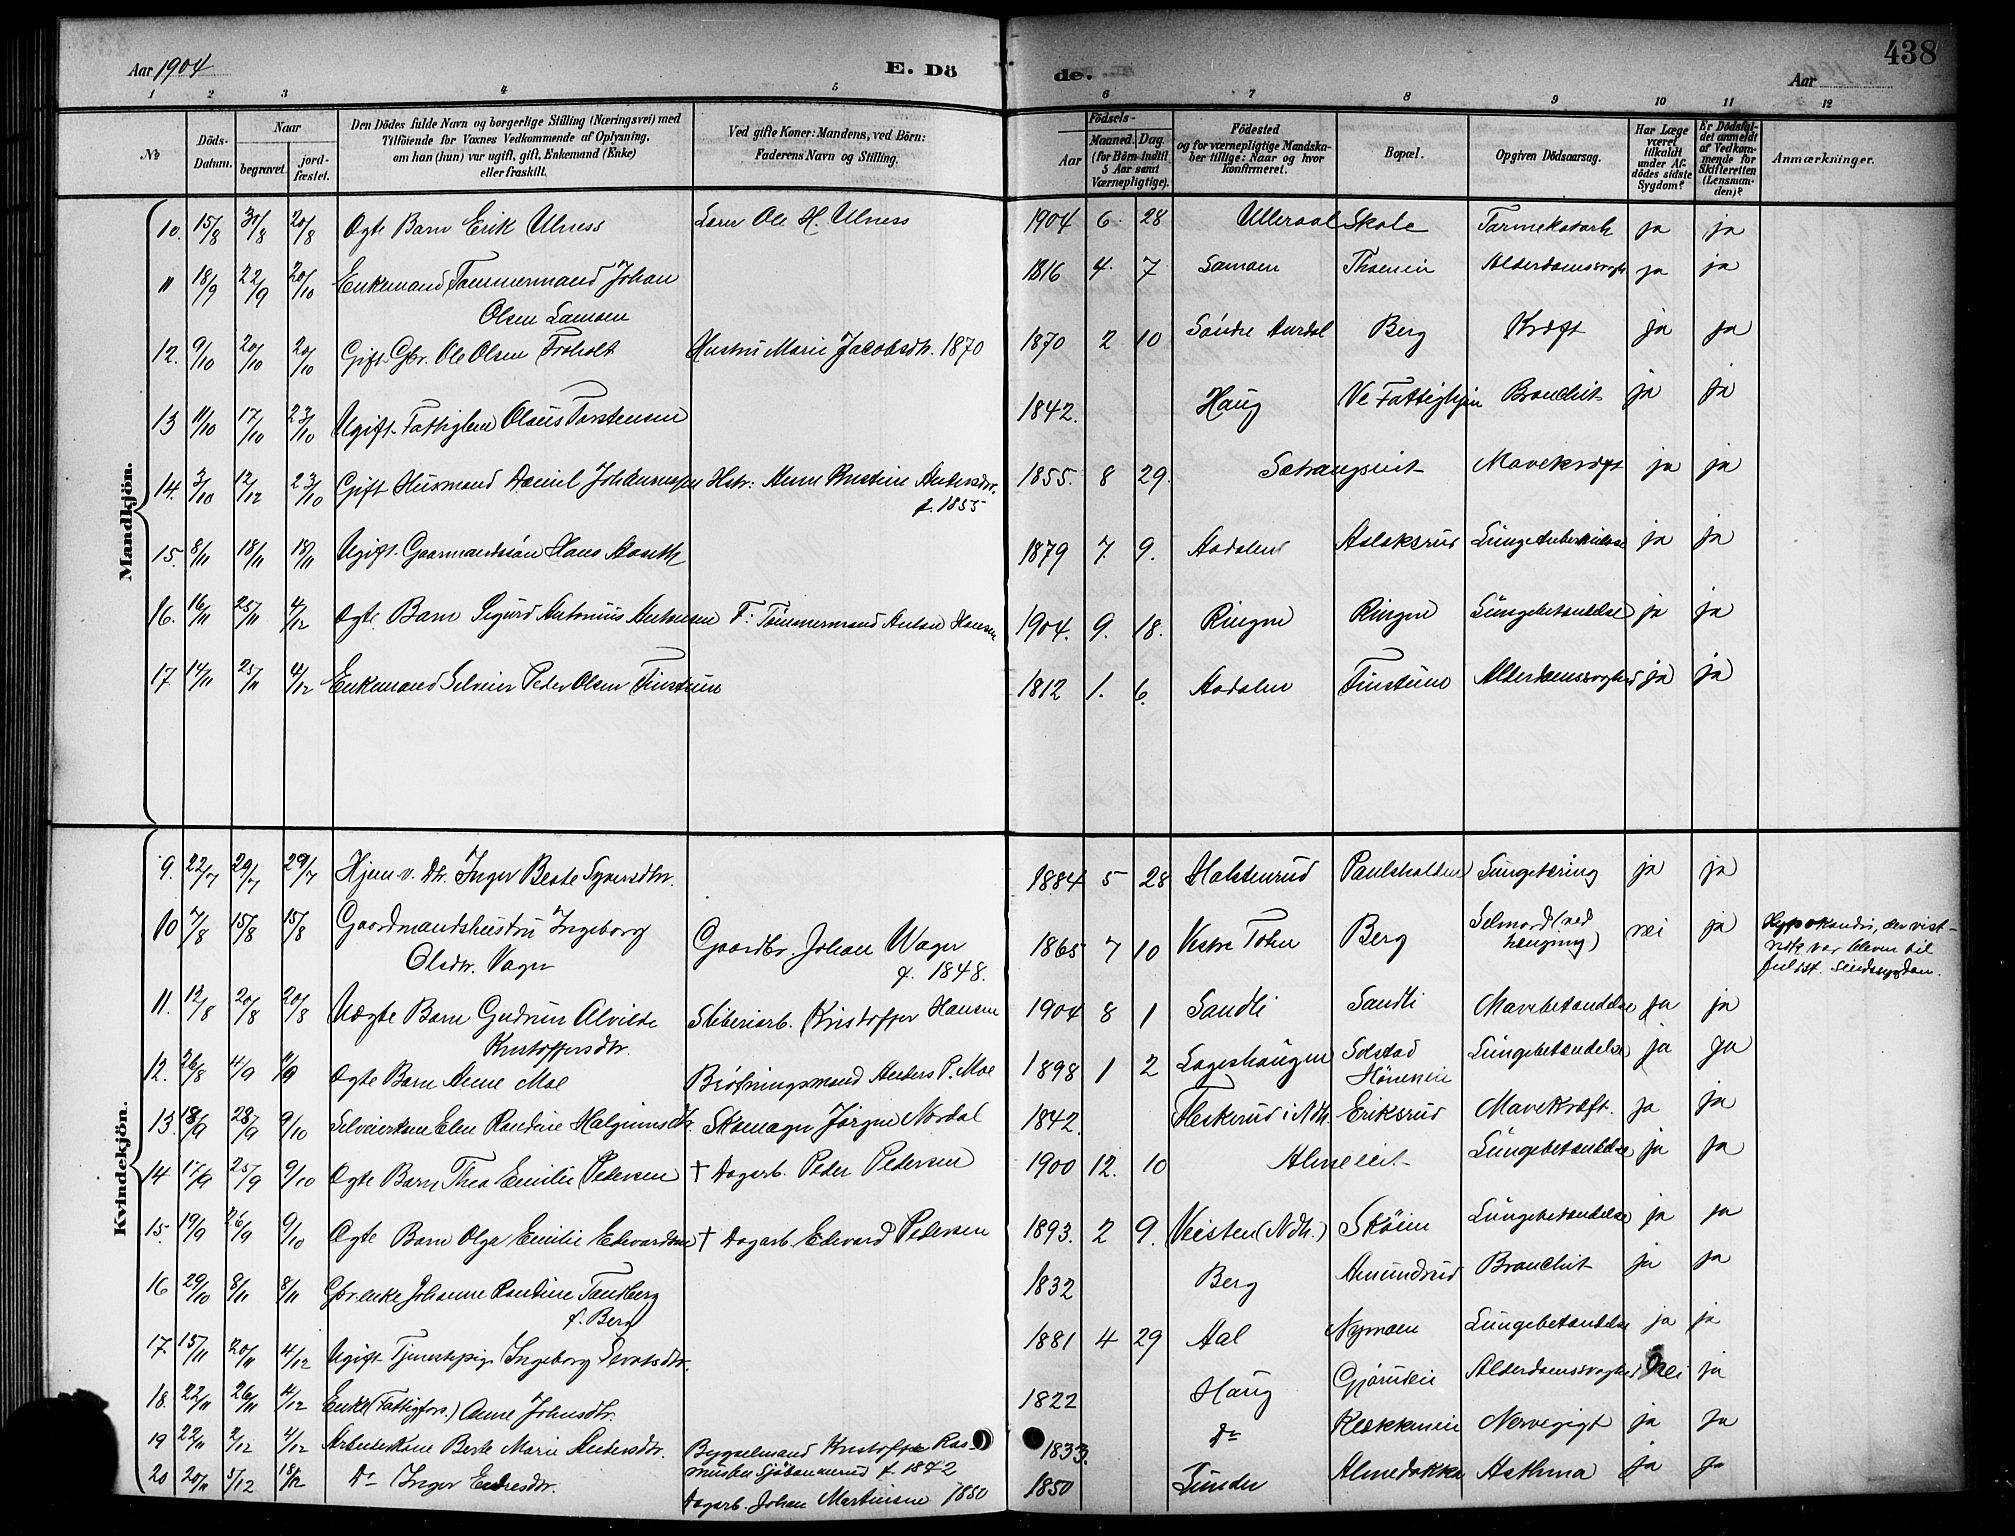 438
Aar 1904
E. Dö
de.
Aar
1 2 3 4 5 6 7 8 9 10 11 12
No
Döds-Datum.
Naar
begravet.
jord-fæstet.
Den Dödes fulde Navn og borgerlige Stilling (Næringsvei) med
Tilföiende for Voxnes Vedkommende af Oplysning,
om han (hun) var ugift, gift, Enkemand (Enke)
eller fraskilt.
Ved gifte Koner: Mandens, ved Börn:
Faderens Navn og Stilling.
Födsels-
Aar
Maaned. Dag.
(for Börn indtil
5 Aar samt
Værnepligtige).
Födested
og for værnepligtige Mandska-
ber tillige: Naar og hvor
konfirmeret.
Bopæl.
Opgiven Dödsaarsag.
Har Læge
været
tilkaldt
under Af-
dödes sidste
Sygdom?
Er Dödsfal-
det anmeldt
af Vedkom-
mende for
Skifteretten
(Lensman-
den)?
Anmærkninger.
Mandkjön.
10. 15/8 31/8 20/8 Ægte Barn Erik Ulness Lærer Ole H. Ulness 1904 6 28 Ulleraal Skole Tarmekatarh ja ja
11 18/9 22/9 20/10 Enkemand Tømmermand Johan 1816 4. 7 Samoen Alderdomssvagh ja ja
Olsen Samoen
12. 9/10 20/10 20/10 Gift Gbr. Ole Olsen Froholt Hustru Marie Jacobsdtr. 1870 1870 2 10 Søndre Aurdal Berg Kræft ja ja
13 11/10 17/10 23/10 Ugift Fattiglem Olaus Torstensen 1842. Haug Ve Fattighjem Bronchit ja ja
14. 3/10 12/12 23/10 Gift Husmand Daniel Johannessen Hstr: Anne Kristine Andersdtr. 1855. 8 29. Setrangseiet Mavekræft ja ja
f. 1855
15. 8/11 18/11 18/11 Ugift Gaarmandssøn Hans 1879 7 9. Aadalen Aslaksrud Lungetuberkulose ja ja
16. 16/11 25/11 4/12 Ægte Barn Sigurd Antonius Antonsen F: Tømmermand Anton Hansen 1904. 9. 18. Ringen Ringen Lungebetændelse ja ja
17 14/11 25/11 4/12 Enkemand Selveier Peder Olsen 1812 1. 6. Aadalen Alderdomssvaghed ja ja
Kvindekjön.
9. 22/7 29/7 29/7 Hjem. v. Dtr. Inger Beate Syversdtr. 1884 5 28 Halstenrud Paulsholdten Lungetæring ja ja
10 7/8 15/8 15/8 Gaardmandshustru Ingeborg Gaardbr. Johan Wager 1865 7 10 Vestre Toten Berg Selmord (ved hengning) nei ja Hypokondri, der vist-
Olsdtr. Vager f. 1848. nok var bleven til
fuldst. Sindssygdom.
11. 12/8 20/8 20/8 Uægte Barn Gudrun Alvilde Sliberiarb. Kristoffer Hansen 1904 8 1 Sandli Sandli Mavebetændelse ja ja
Kristoffersdtr.
12. 26/8 4/9 11/9 Ægte Barn Anne Moe Anders P. Moe 1898 1 2 Lageshaugen Solstad Lungebetændelse ja ja
Hønenseie
13. 18/9 28/9 9/10 Selveierkone Elen Randine Halgrimsdtr. Skomager Jørgen Nordal 1842. Heskerud i Ndh. Eriksrud Mavekræft. ja ja
14 17/9 25/9 9/10 Ægte Barn Thea Emilie Pedersen † Dagarb. Peder Pedersen 1900 12. 10 Almeeiet Lungebetændelse ja ja
15. 19/9 26/9 9/10 Ægte Barn Olga Emilie Edvardsen † Dagarb. Edvard Pedersen 1893. 2 9. Veisten (Ndh.) Skøien Lungebetændelse ja ja
16 29/10 8/11 8/11 Gbr.enke Johanne Randine Tandberg 1832 Berg Amundrud Bronchit ja ja
f. Berg
17 15/11 20/11 4/12 Ugift Tjenestepige Ingeborg 1881 4 29 Aal Nymoen Lungebetændelse ja ja
18. 22/11 26/11 4/12 Enke (Fattigfors.) Anne Johnsdtr. 1822 Haug Alderdomssvaghed nei ja
19 22/11 2/12 4/12 Arbeiderkone Berte Marie Andersdtr. Bygselmand Kristoffer Ras- 1833. Do Klækkeneie Nervegigt ja ja
mussen f. 1842
20 20/11 5/12 18/12 Do Inger Endresdtr. Dagarb. Johan Martinsen 1850 1850 Lunder Almedokka Asthma ja ja